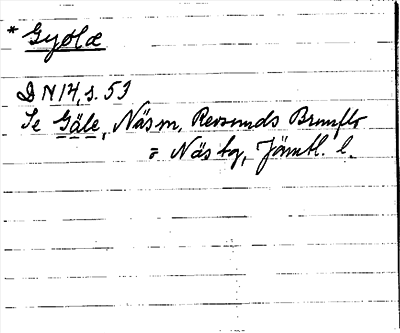 * Gyølæ
DN 14, s. 53
Se Gäle, Näs sn, Revsunds Brunflo
= Näs tg, Jämtl. l.